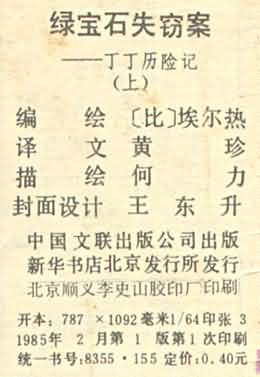 绿宝石失窃案
——丁丁历险记
(上)
编 绘 〔比〕埃尔热
译 文 黄 珍
描 绘 何 力
封面设计 王 东 升
中国文联出版公司出版
新华书店北京发行所发行
北京顺义李史山胶印厂印刷
开本：787 ×1092毫米1/64印张 3
1985年 2 月第 1 版第1次印刷
统一书号:8355·155 定价:0.40元